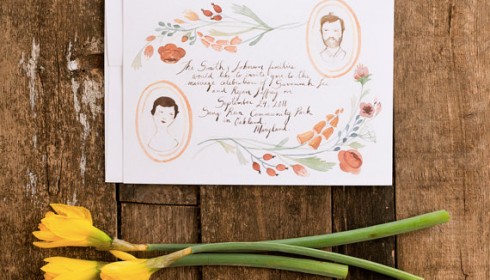 The Smith & Johnson families
would like to invite you to the
marriage celebration of Savannah Lee
and Ryan Jeffrey on
September 29, 2018
Sang Run Community Park
in Oakland
Maryland